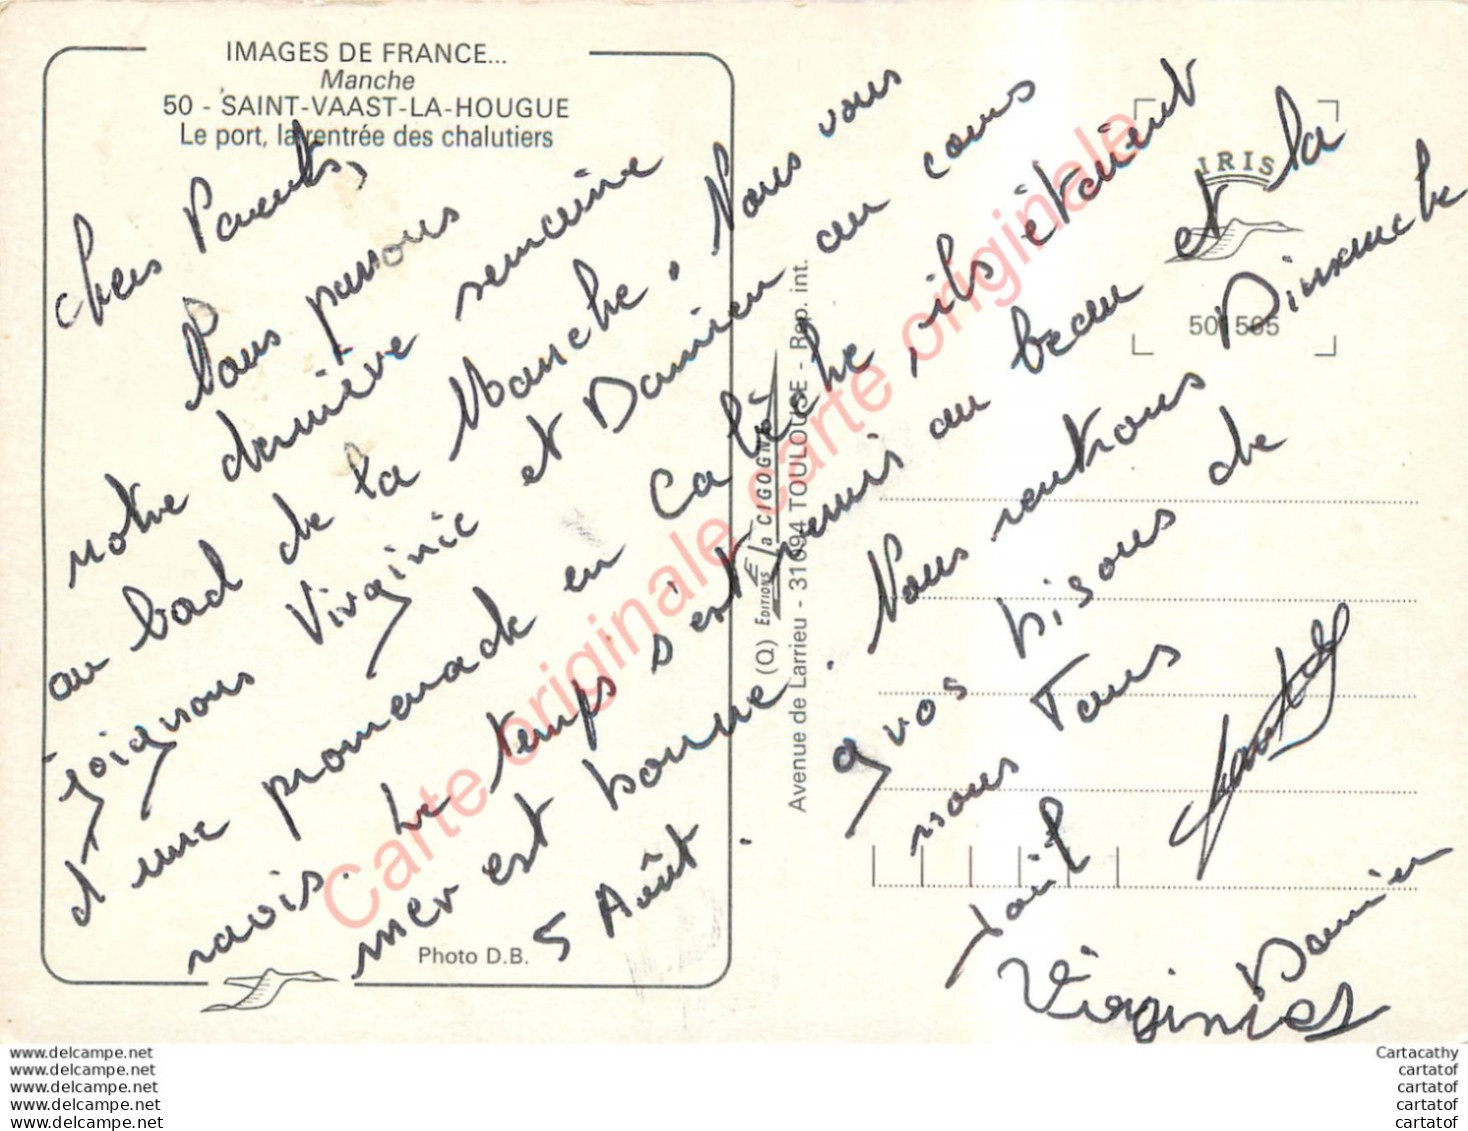 IMAGES DE FRANCE...
Manche
50 - SAINT-VAAST-LA-HOUGUE
Le port, la rentrée des chalutiers
Chers Parents,
Nous passons
notre dernière semaine
au bord de la Manche. Nous vous
joignons Virginie et Damien au cours
d'une promenade en Calèche, ils étaient
ravis. Le temps s'est remis au beau et la
mer est bonne. Nous rentrons Dimanche
5 Août.
gros bisous de
nous Tous
Damien
Virginie
Photo D.B.
(Q) EDITIONS la CIGOGNE
Avenue de Larrieu - 31094 TOULOUSE - Rep. int.
IRIS
501505
Carte originale carte originale
www.delcampe.net
www.delcampe.net
www.delcampe.net
www.delcampe.net
www.delcampe.net
Cartacathy
cartatof
cartatof
cartatof
cartatof